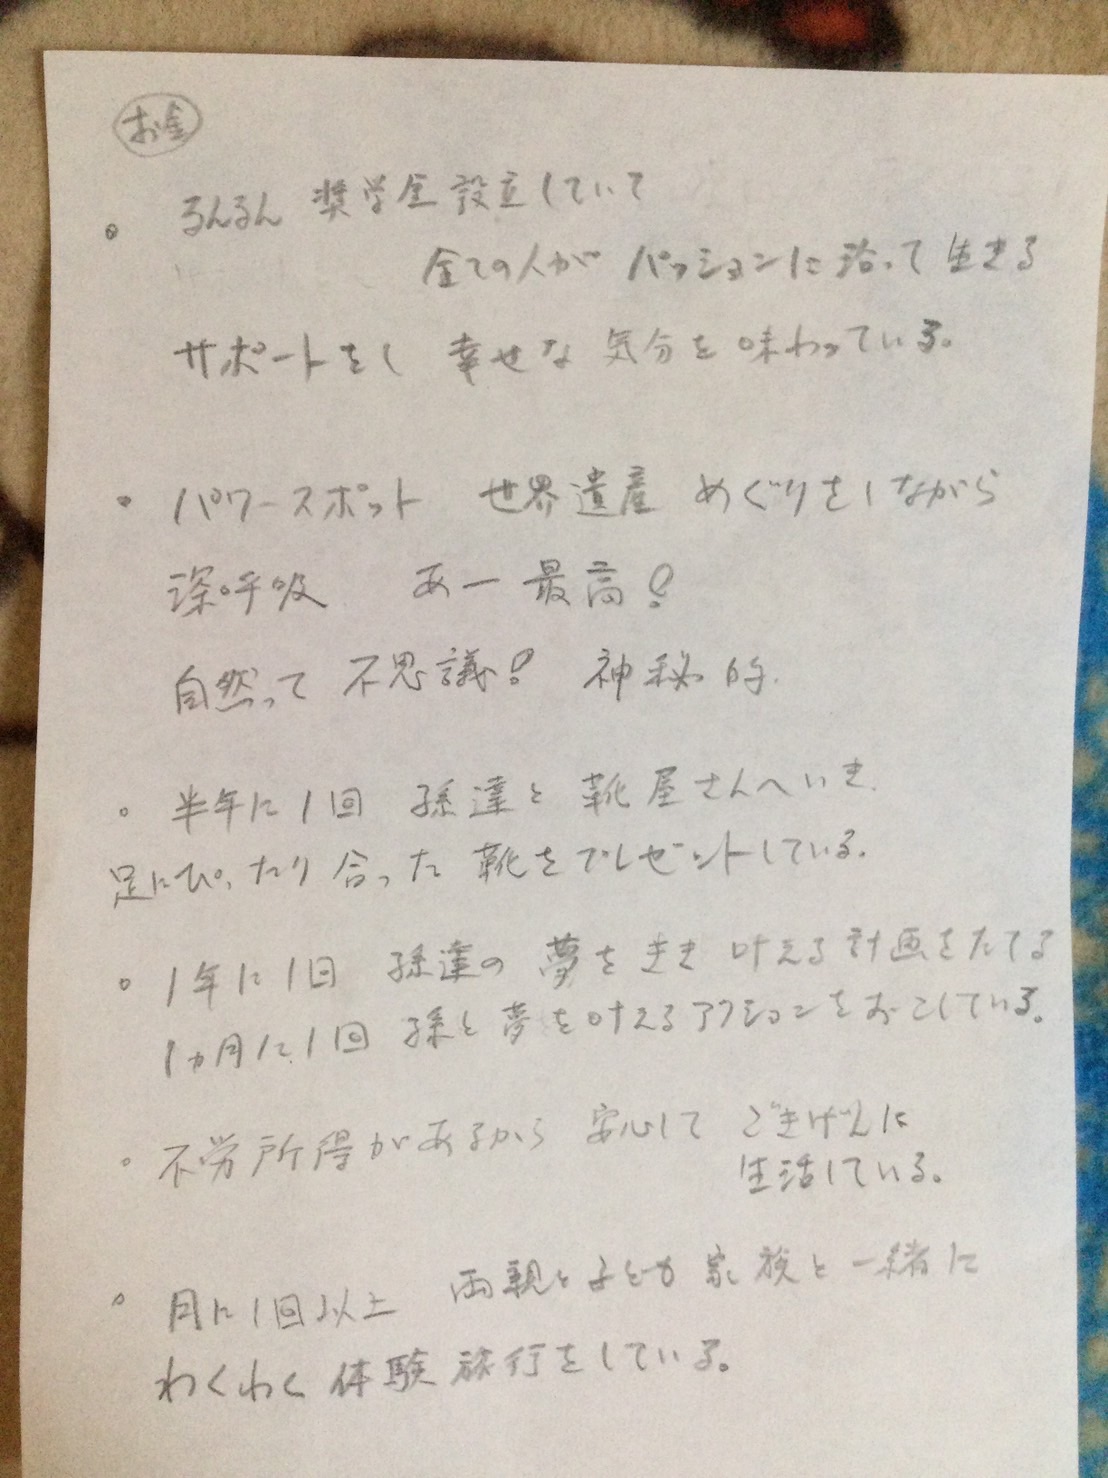 お金
• るんるん 奨学金設立していて
全ての人が パッションに沿って生きる
サポートをし 幸せな気分を味わっている。
• パワースポット 世界遺産 めぐりをしながら
深呼吸 あー最高！
自然って不思議！ 神秘的.
• 半年に1回 孫達と靴屋さんへいき
足にぴったり合った靴をプレゼントしている。
• 1年に1回 孫達の夢をきき叶える計画をたてる
1ヵ月に1回 孫と夢を叶えるアクションをおこしている。
• 不労所得があるから 安心して ごきげんに
生活している。
• 月に1回以上 両親と子ども家族と一緒に
わくわく体験旅行をしている。